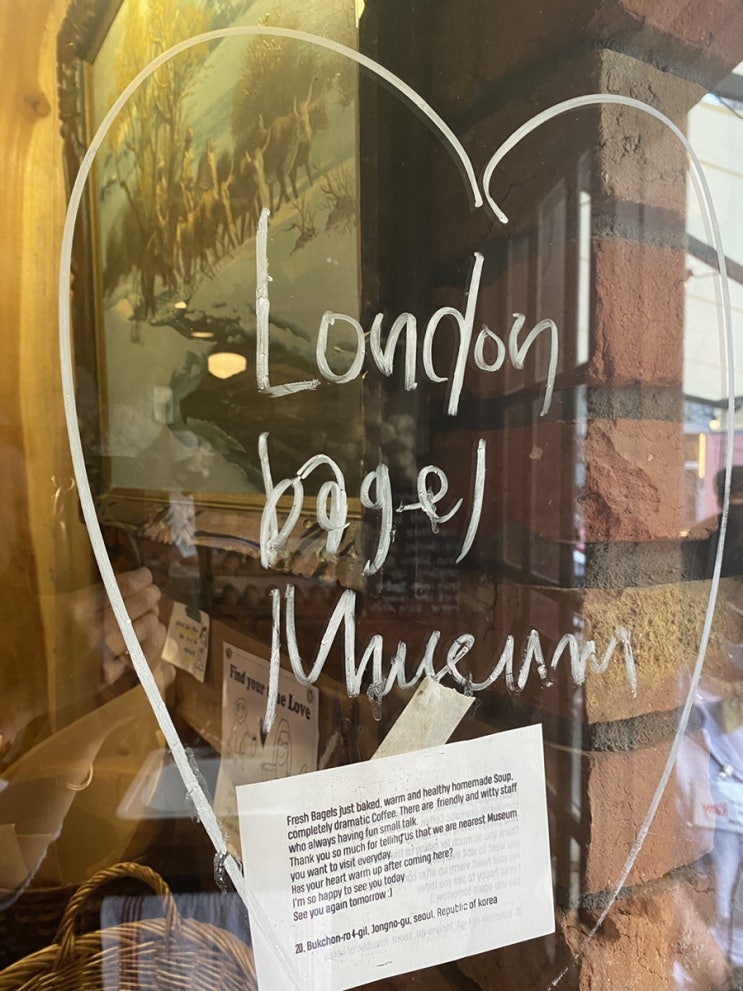 London
bagel
Museum
Find your
Love
Fresh Bagels just baked, warm and healthy homemade Soup,
completely dramatic Coffee. There are friendly and witty staff
who always having fun small talk.
Thank you so much for telling us that we are nearest Museum
you want to visit everyday.
Has your heart warm up after coming here?
I'm so happy to see you today
See you again tomorrow :]
20, Bukchon-ro 4-gil, Jongno-gu, seoul, Republic of korea